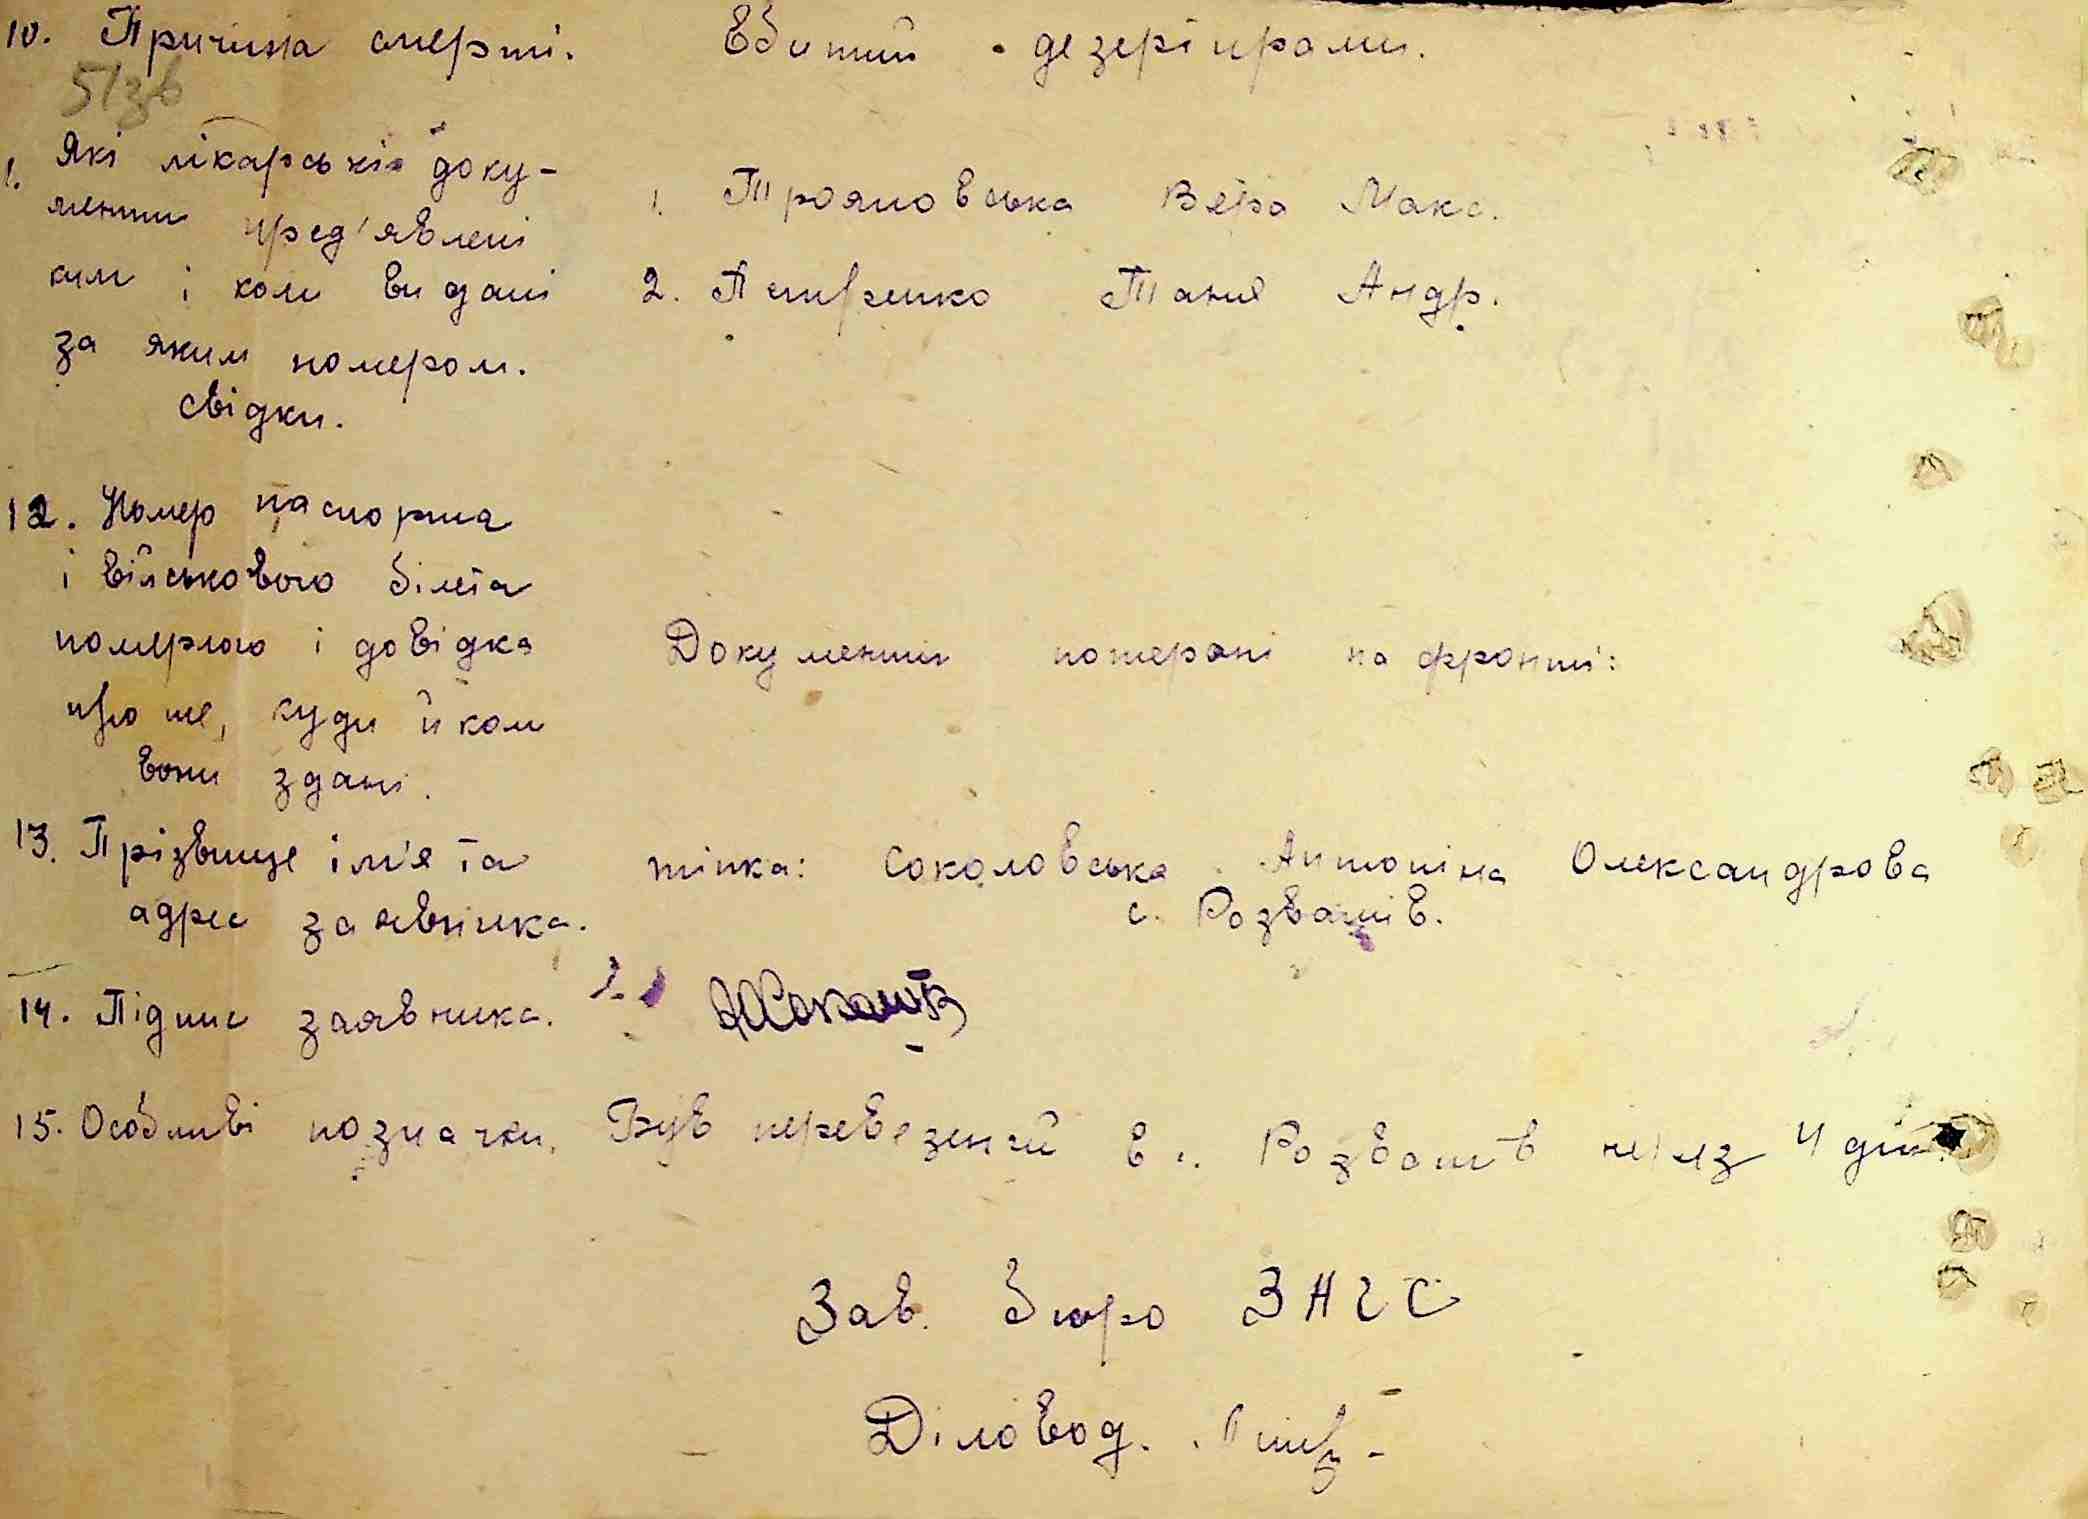 10. Причина смерті. Вбитий дезертірами.
51зв
1. Які лікарські доку-
менти пред'явлені 1. Трояновська Вера Макс.
ким і коли видані 2. Петренко Таня Андр.
за яким номером.
свідки.
12. Номер паспорта
і військового білета
померлого і довідка Документи потерані на фронті:
про те, куди й коли
вони здані.
13. Прізвище ім'я та тіпка: Соколовська Антоніна Олександрова
адрес заявника. с. Розважів.
14. Підпис заявника.
15. Особливі позначки. Був перевезений в с. Розважів через 4 дні.
Зав. бюро ЗАГС
Діловод.